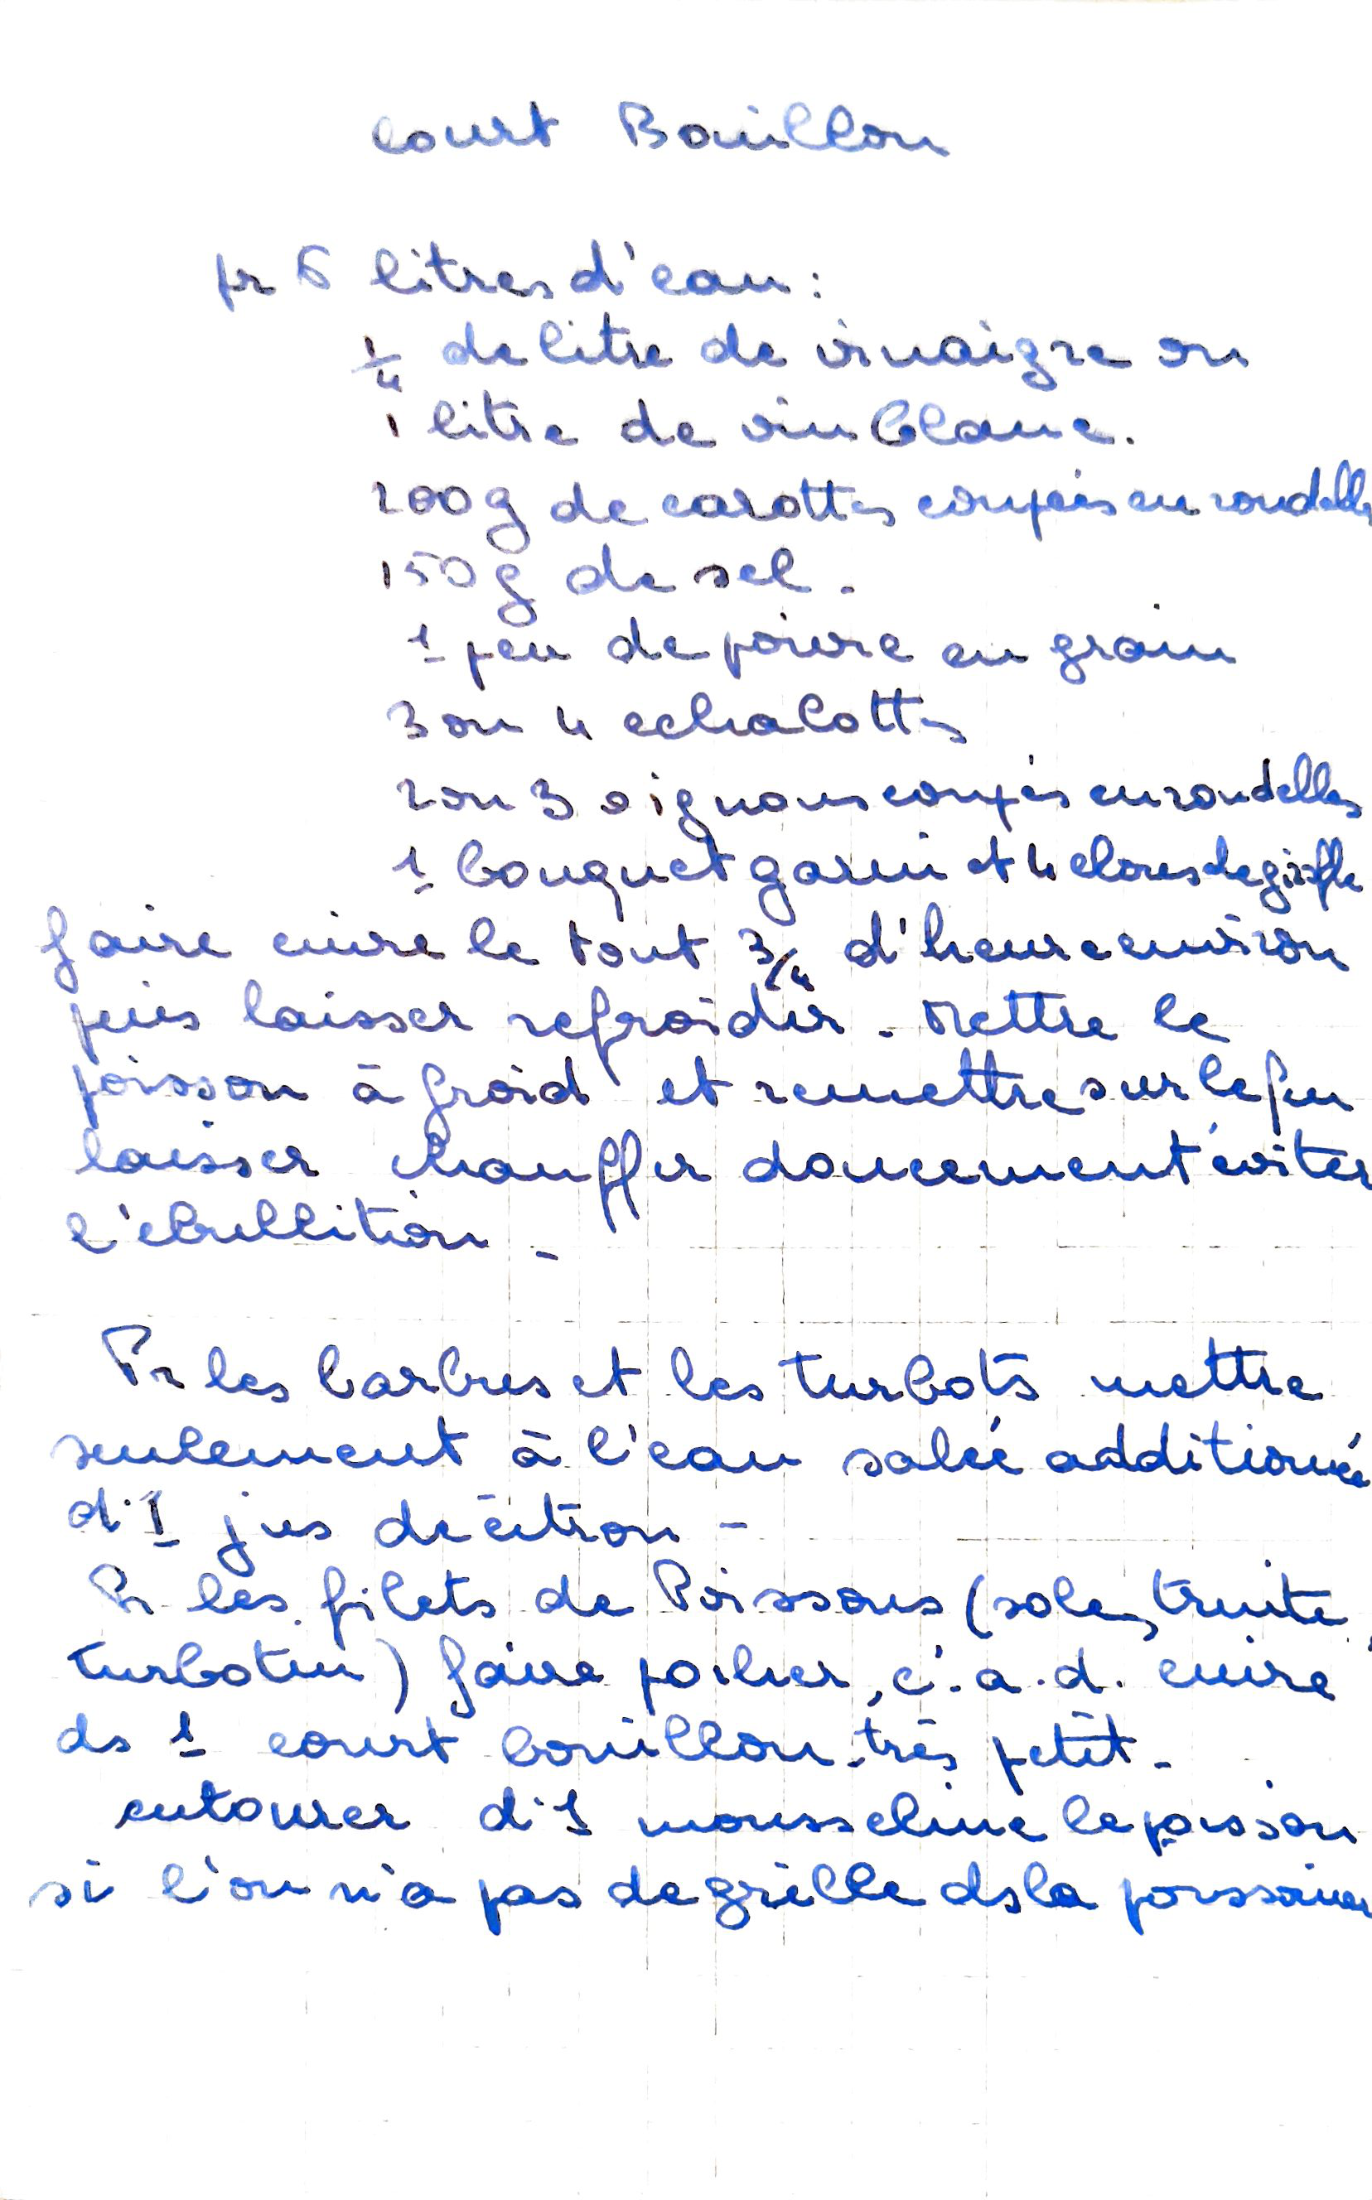 court Bouillon
pr 6 litres d'eau :
1/4 de litre de vinaigre ou
1 litre de vin blanc.
200g de carottes coupées en rondelles
150g de sel.
1 peu de poivre en grain
3 ou 4 echalottes
2 ou 3 oignons coupés en rondelles
1 bouquet garni et 4 clous de girofle
faire cuire le tout 3/4 d'heure environ
puis laisser refroidir. Mettre le
poisson à froid et remettre sur le feu
laisser chauffer doucement éviter
l'ebullition -
Pr les barbues et les turbots mettre
seulement à l'eau salée additionnée
d'1 jus de citron -
Pr les filets de Poissons (soles, truite,
turbotin) faire pocher, c'.a.d. cuire
ds 1 court bouillon très petit -
entourer d'1 mousseline le poisson
si l'on n'a pas de grille ds la